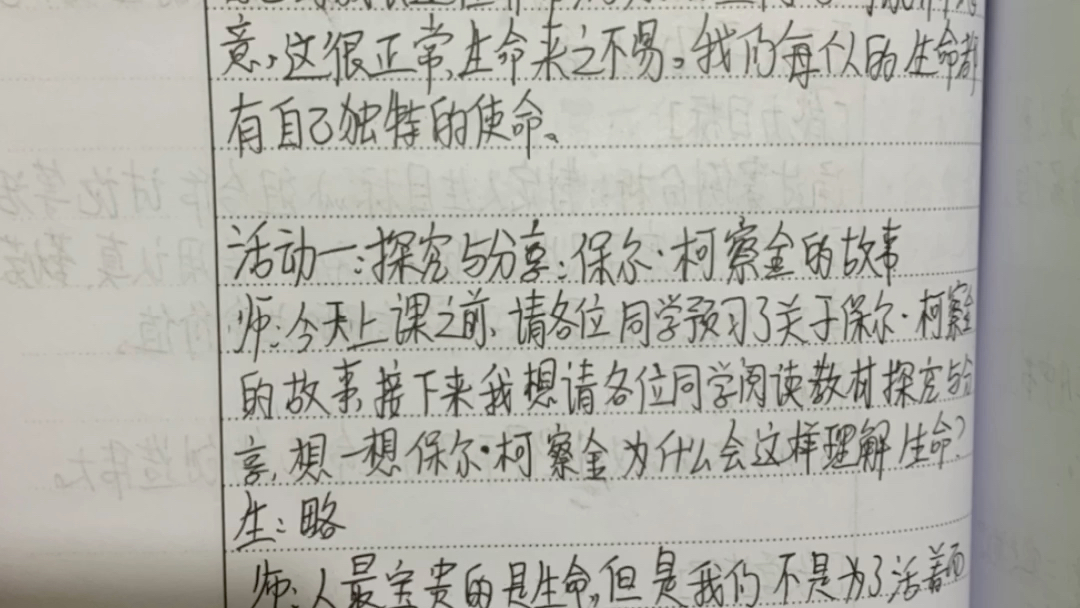 意,这很正常,生命来之不易。我们每个人的生命都
有自己独特的使命。
活动一:探究与分享:保尔·柯察金的故事
师:今天上课之前,请各位同学预习了关于保尔·柯察金
的故事,接下来我想请各位同学阅读教材探究与分
享,想一想保尔·柯察金为什么会这样理解生命?
生:略
师:人最宝贵的是生命,但是我们不是为了活着而